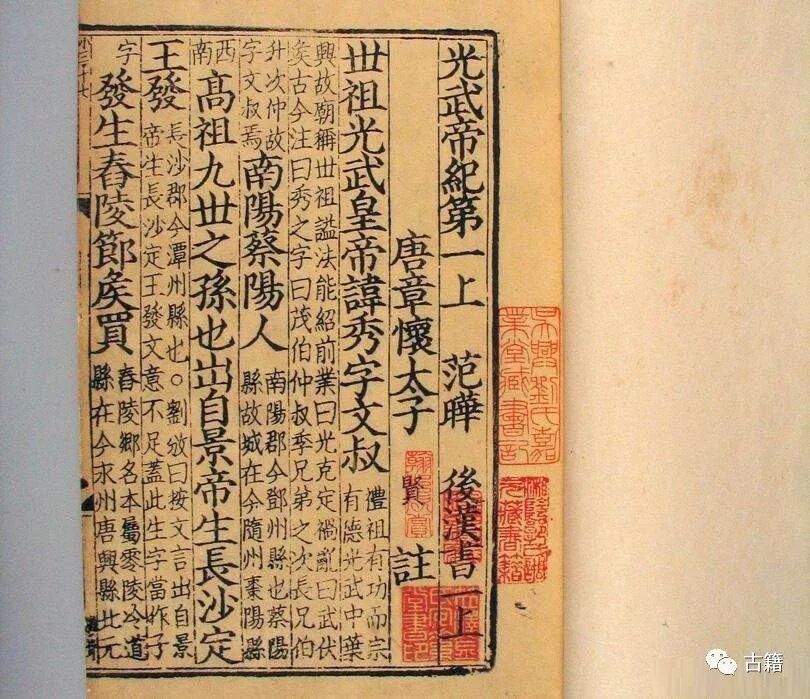 光武帝紀第一上 范曄 後漢書一上
唐章懷太子 賢 註
世祖光武皇帝諱秀字文叔 禮祖有功而宗
有德光武中葉
興故廟稱世祖謚法能紹前業曰光克定禍亂曰武伏
矦古今注曰秀之字曰茂伯仲叔季兄弟之次長兄伯
升次仲故
字文叔焉
南陽蔡陽人
南陽郡今鄧州縣也蔡陽
縣故城在今隨州棗陽縣
西
南
高祖九世之孫也出自景帝生長沙定
王發
長沙郡今潭州縣也○劉攽曰按文言出自景
帝生長沙定王發文意不足蓋此生字當作子
字
發生舂陵節矦買
舂陵鄉名本屬零陵泠道
縣在今永州唐興縣北元
吳興劉氏嘉業堂藏書記
古籍